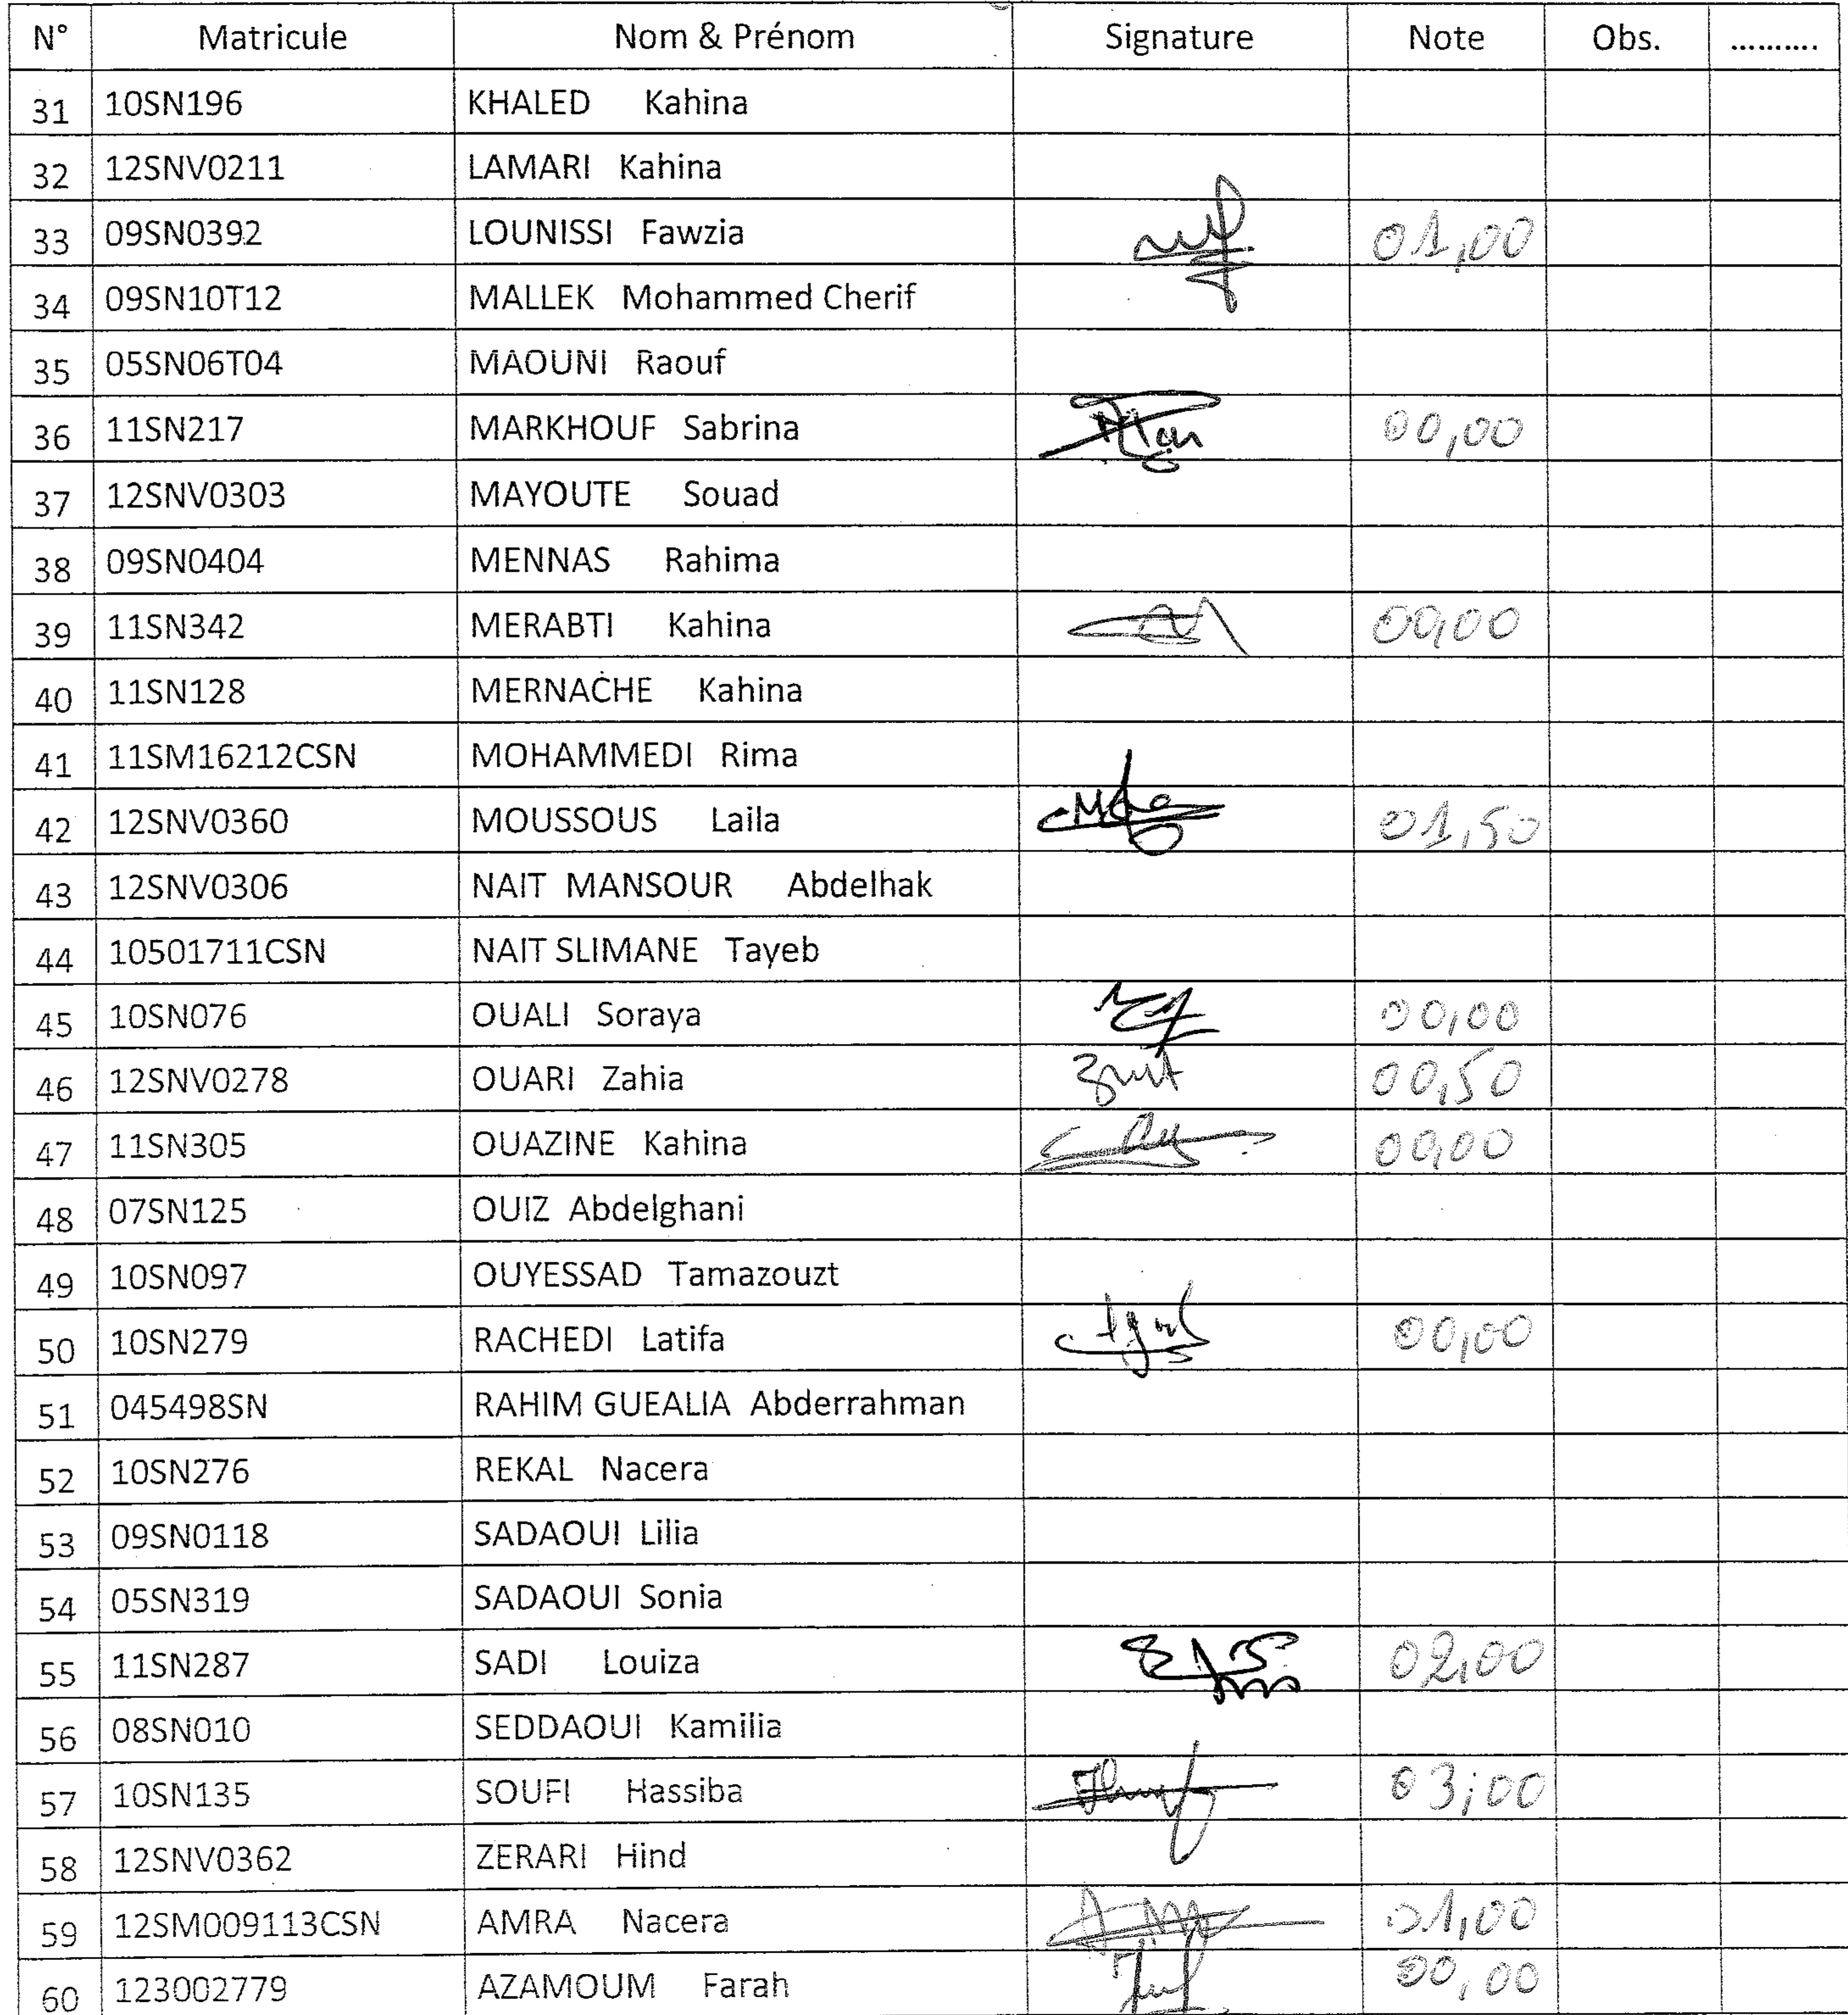 N° Matricule Nom & Prénom Signature Note Obs. ..........
31 10SN196 KHALED Kahina
32 12SNV0211 LAMARI Kahina
33 09SN0392 LOUNISSI Fawzia 01,00
34 09SN10T12 MALLEK Mohammed Cherif
35 05SN06T04 MAOUNI Raouf
36 11SN217 MARKHOUF Sabrina 00,00
37 12SNV0303 MAYOUTE Souad
38 09SN0404 MENNAS Rahima
39 11SN342 MERABTI Kahina 00,00
40 11SN128 MERNACHE Kahina
41 11SM16212CSN MOHAMMEDI Rima
42 12SNV0360 MOUSSOUS Laila 01,50
43 12SNV0306 NAIT MANSOUR Abdelhak
44 10501711CSN NAIT SLIMANE Tayeb
45 10SN076 OUALI Soraya 00,00
46 12SNV0278 OUARI Zahia 00,50
47 11SN305 OUAZINE Kahina 00,00
48 07SN125 OUIZ Abdelghani
49 10SN097 OUYESSAD Tamazouzt
50 10SN279 RACHEDI Latifa 00,00
51 045498SN RAHIM GUEALIA Abderrahman
52 10SN276 REKAL Nacera
53 09SN0118 SADAOUI Lilia
54 05SN319 SADAOUI Sonia
55 11SN287 SADI Louiza 02,00
56 08SN010 SEDDAOUI Kamilia
57 10SN135 SOUFI Hassiba 03,00
58 12SNV0362 ZERARI Hind
59 12SM009113CSN AMRA Nacera 01,00
60 123002779 AZAMOUM Farah 00,00